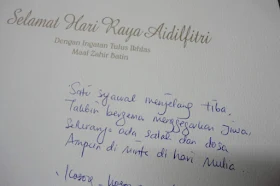 Selamat Hari Raya Aidilfitri
Dengan Ingatan Tulus Ikhlas
Maaf Zahir Batin
Satu syawal menjelang tiba,
Takbir bergema menggegarkan jiwa,
Sekiranya ada salah dan dosa
Ampun di minta di hari mulia.